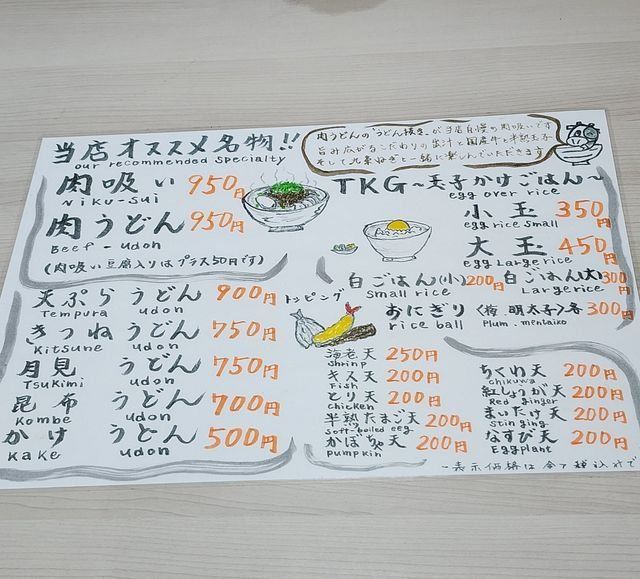 当店オススメ名物!!
our recommended specialty
肉うどんの"うどん抜き"が当店自慢の肉吸いです
旨み広がるこだわりの出汁と国産牛と半熟玉子
そして九条ねぎと一緒に楽しんでいただきます
肉吸い 950円
Niku-sui
肉うどん 950円
Beef-udon
(肉吸い豆腐入りはプラス50円です)
TKG〜玉子かけごはん〜
egg over rice
小玉 350円
egg rice small
大玉 450円
egg Large rice
白ごはん(小) 200円
Small rice
白ごはん(大) 300円
Large rice
おにぎり(梅、明太子)各 300円
rice ball Plum. mentaiko
天ぷらうどん 900円
Tempura udon
きつねうどん 750円
Kitsune udon
月見うどん 750円
Tsukimi udon
昆布うどん 700円
Kombe udon
かけうどん 500円
Kake udon
トッピング
海老天 250円
Shrimp
キス天 200円
Fish
とり天 200円
chicken
半熟たまご天 200円
soft-boiled egg
かぼちゃ天 200円
pumpkin
ちくわ天 200円
chikuwa
紅しょうが天 200円
Red ginger
まいたけ天 200円
Stinging
なすび天 200円
Eggplant
表示価格は全て税込